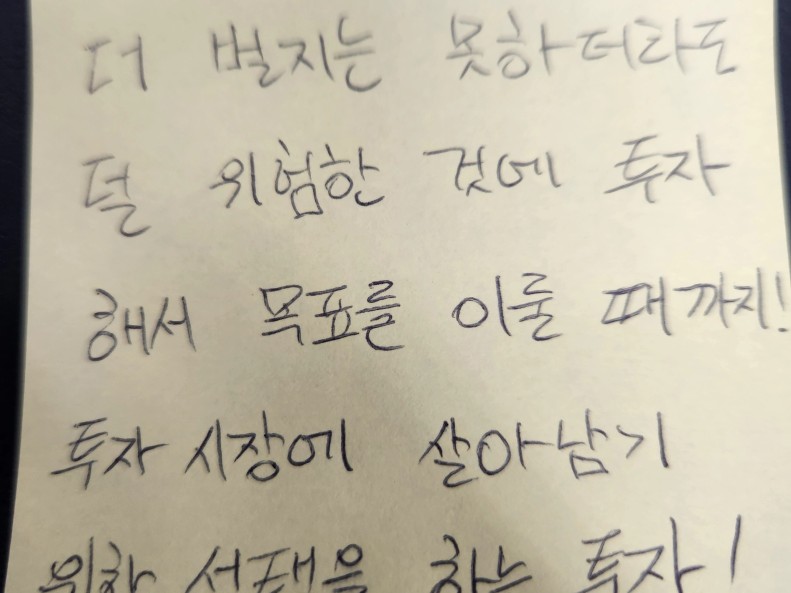 더 벌지는 못하더라도
덜 위험한 것에 투자
해서 목표를 이룰 때까지!
투자 시장에 살아남기
위한 선택을 하는 투자!